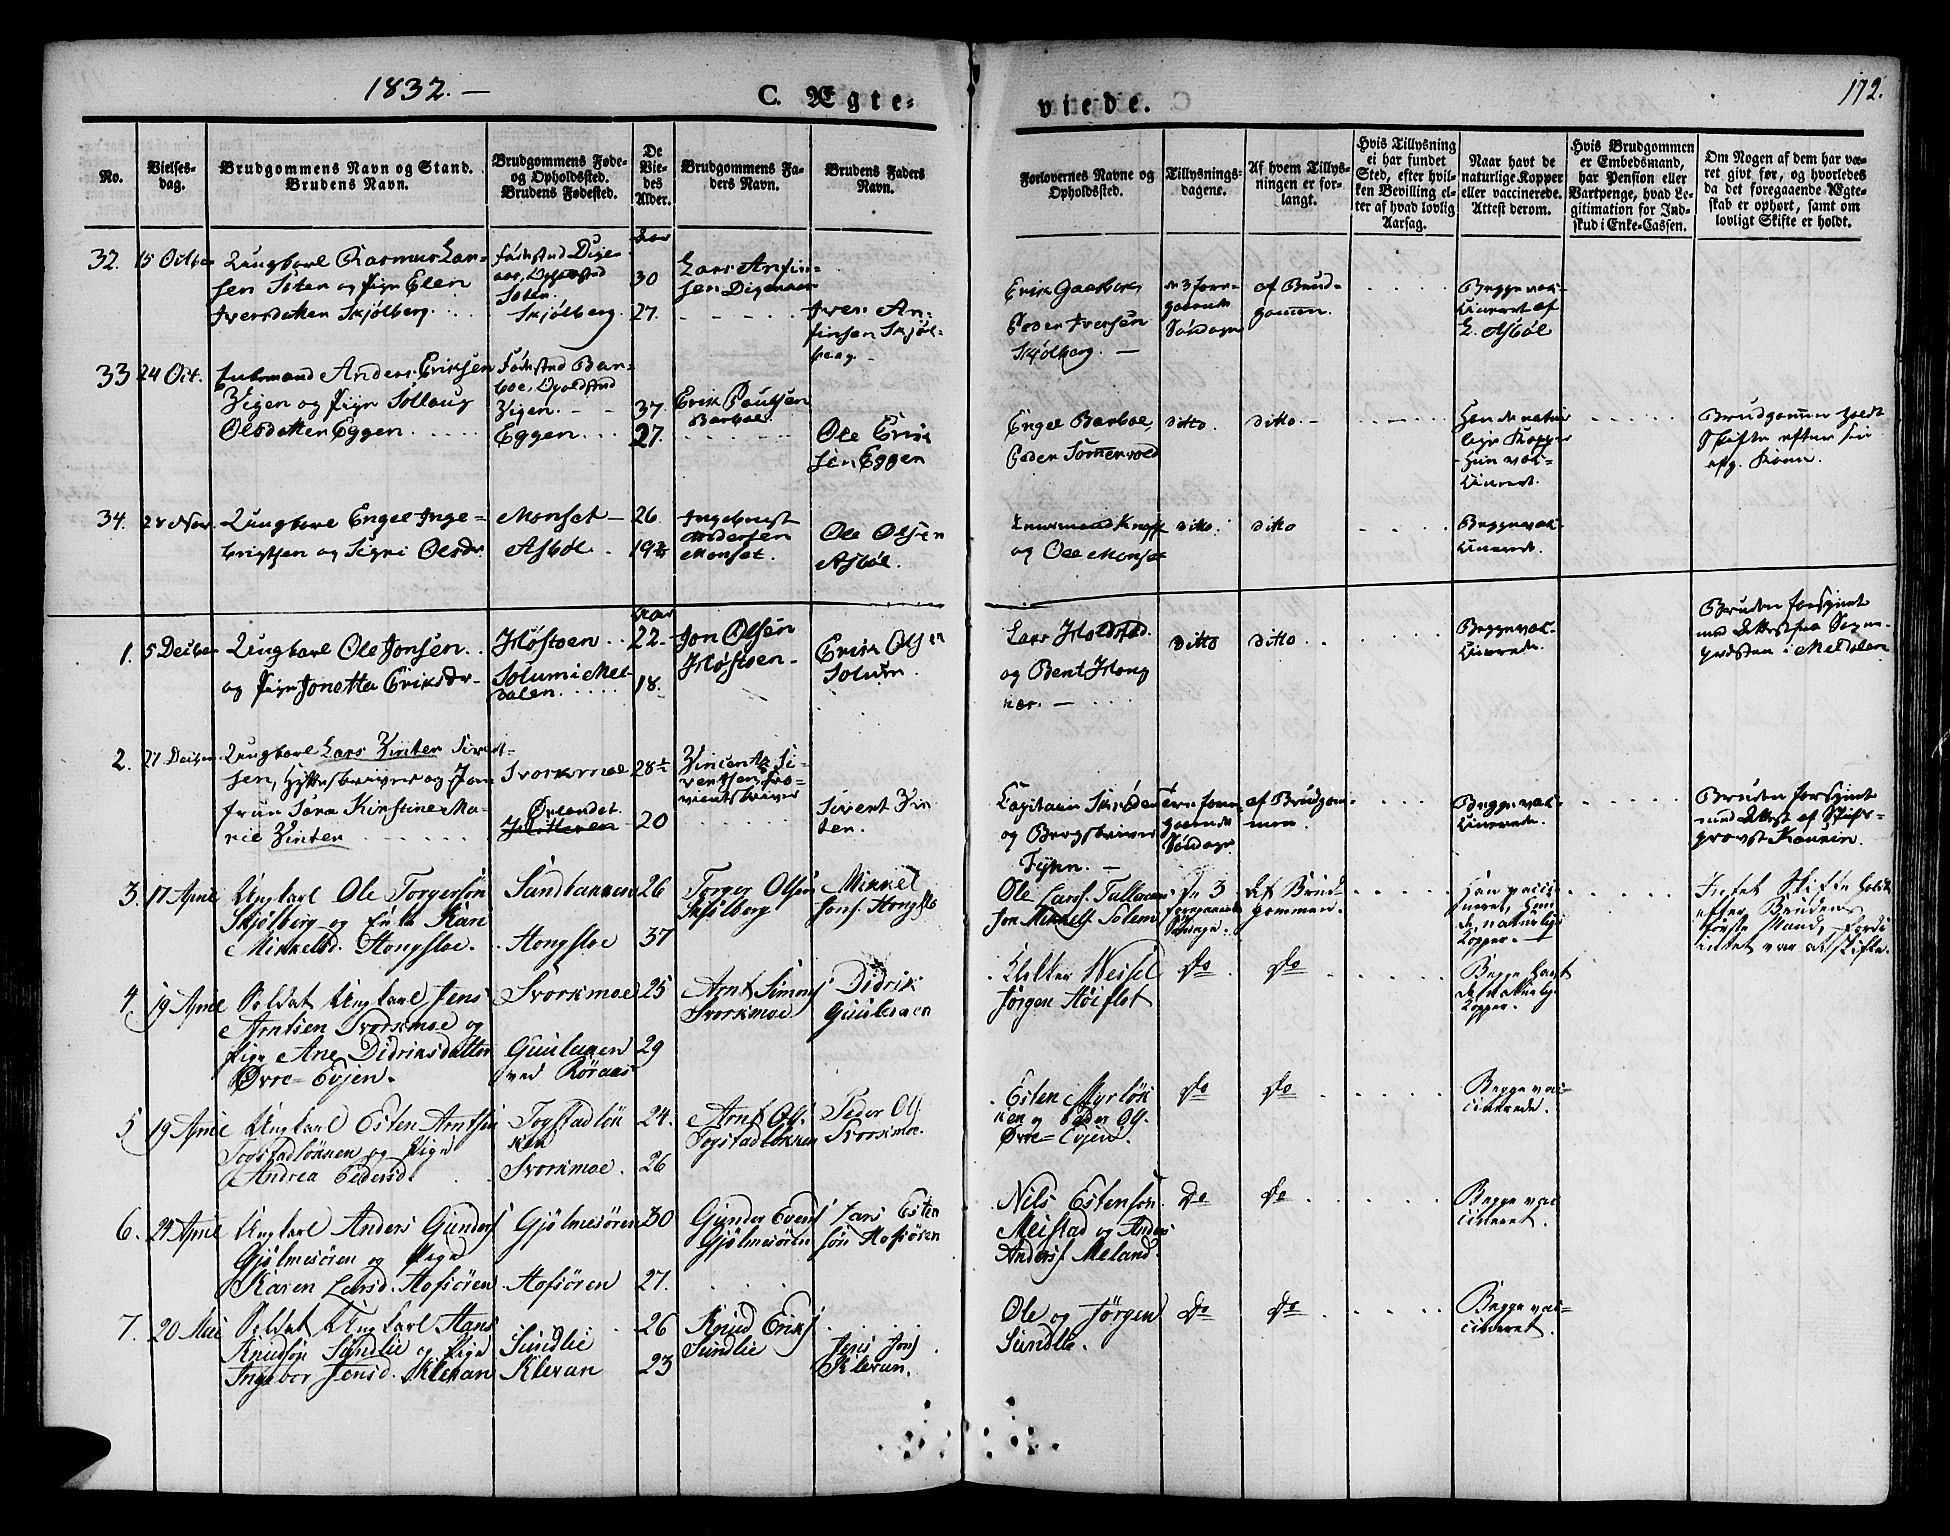 1832.
C. Ægte-
viede.
172.
No.
Vielses-
dag.
Brudgommens Navn og Stand.
Brudens Navn.
Brudgommens Føde-
og Opholdssted.
Brudens Fødested.
De
Vie-
des
Alder.
Brudgommens Fa-
ders Navn.
Brudens Faders
Navn.
Forlovernes Navne og
Opholdssted.
Tillysnings-
dagene.
Af hvem Tillys-
ningen er for-
langt.
Hvis Tillysning
ei har fundet
Sted, efter hvil-
ken Bevilling el-
ler af hvad lovlig
Aarsag.
Naar havt de
naturlige Kopper
eller vaccinerede.
Attest derom.
Hvis Brudgommen
er Embedsmand,
har Pension eller
Vartpenge, hvad Le-
gitimation for Ind-
skud i Enke-Cassen.
Om Nogen af dem har væ-
ret givt før, og hvorledes
da det foregaaende Ægte-
skab er ophørt, samt om
lovligt Skifte er holdt.
32. 15 Octber Ungkarl Rasmus Lar-
sen Soten og Pige Elen
Iversdatter Skjølberg.
Soten.
Skjølberg.
Aar
30
27.
Lars
Iver An-
finsen Skjøl-
berg
Erik
Peder Iversen
Skjølberg.
de 3 fore-
gaaende
Søndage
af Brud-
gommen.
Begge vac-
cineret af
E. Asbøl
33 24 Oct. Enkemand Anders Eriksen
Vigen og Pige Sollaug
Olsdatter Eggen
Fødested Bar-
boe, Opholdsted
Vigen.
Eggen
37.
27.
Erik Paulsen
Barboe
Ole Erik
sen Eggen
Engel Barboe
Peder Sommervold
ditto.
ditto.
Han de natur
lige Kopper
Hun vac-
cineret.
Brudgommen holdt
Skifte efter sin
afg. Kone.
34. 28 Nov. Ungkarl Engel Inge-
brigtsen og Sigri Olsdr
Monset
Asbøl
26
19
Ingebrigt
Andersen
Monset.
Ole Olsen
Asbøl.
og Ole Monset
ditto
ditto
Begge vac-
cinerede.
1. 5 Decber Ungkarl Ole Jonsen
og Pige Jonetta Eriksdr
Høstoen
Solum i Mel-
dalen
Aar
22
18.
Jon Olsen
Høstoen
Erik Olsen
Solum
Lars Holdstad
og Bent Hong
nær.
ditto
ditto
Begge vac-
cinerede.
Bruden forsynet
med Attest fra Sogne
præsten i Meldalen
2. 27 Decber Ungkarl Lars Vinter Sivert-
sen, Hytteskriver og Jom
frue Sara Kirstine Ma-
rie Vinter
Svorkmoe
Ørlandet
28
20
Sivert Vin
ter.
Capitain
og Bergskriver
af Brudgom-
men.
Begge vac-
cinerede.
Bruden forsynet
med Attest af Stifts-
provst
3. 17 April Ungkarl Ole Torgersøn
Skjølberg og Enke Kari
Mikkelsd. Hongsloe.
Sundbakken
Hongsloe
26
37
Torger Olsen
Skjølberg
Mikkel
Jons. Hongslo
Ole Lars.
Jon Mikkels. Solem
De 3
foregaaende
Søndage.
Af Brud
gommen.
Han vacci
neret, Hun
de naturlige
Kopper.
Intet Skifte holdt
efter Brudens
første Mand, fordi
intet var at skifte.
4. 19 April Soldat Ungkarl Jens
Arntsen Svorkmoe og
Pige Ane Didriksdatter
Øvre-Evjen.
Svorkmoe
Guulaaen
ved Røraas
25
29
Arnt Simons
Svorkmoe
Didrik
Guulaaen
Jørgen Høiflot
Do
Do
Begge havt
de naturlige
Kopper.
5 19 April Ungkarl Esten Arntsen
Togstadløkken og Pige
Andrea Pedersd.
Togstadløk
ken
Svorkmoe.
24.
26
Arnt Ols.
Togstadløkken
Peder Ols.
Svorkmoe.
Esten Myrløk
ken og Peder Ols.
Øvre-Evjen.
Do
Do
Begge vac-
cinerede.
6. 24 April Ungkarl Anders Gunders.
Gjølmesøren og Pige
Karen Larsd. Hofsøren
Gjølmesøren
Hofsøren
30
27.
Gunder Evens
Gjølmesøren
Lars Esten
søn Hofsøren
Nils Estensøn
Meistad og Anders
Anders. Meland.
Do
Do
Begge vac
cineret.
7. 20 Mai Soldat Ungkarl Hans
Knudsøn Sundlie og Pige
Ingebor Jensd. Kleran
Sundlie
Kleran
26
23
Knud Eriks.
Sundlie
Jens Jons.
Kleran.
Ole og Jørgen
Sundlie.
Do
Do
Begge vac-
cineret.